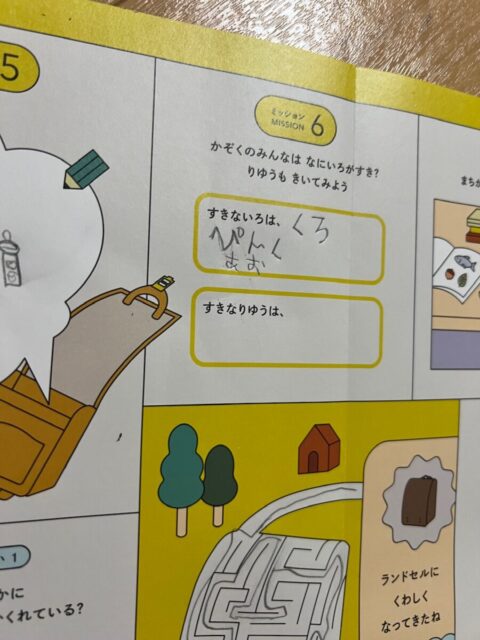 5
ミッション
MISSION 6
かぞくのみんなは なにいろがすき?
りゆうも きいてみよう
すきないろは、くろ
ぴんく
あお
すきなりゆうは、
まちが
い 1
かに
くれている?
ランドセルに
くわしく
なってきたね